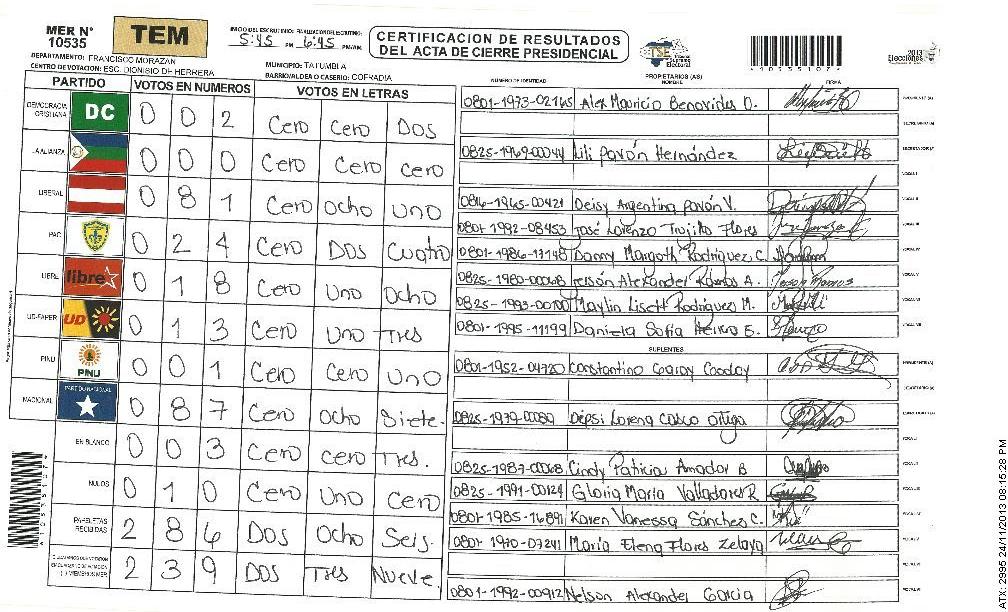 MER N° 10535
TEM
INICIO DEL ESCRUTINIO: 5:45 PM FINALIZACION DEL ESCRUTINIO: 6:45 PM/AM.
CERTIFICACION DE RESULTADOS
DEL ACTA DE CIERRE PRESIDENCIAL
TSE Tribunal Supremo Electoral
2013 Elecciones
DEPARTAMENTO: FRANCISCO MORAZAN
MUNICIPIO: TATUMBLA
CENTRO DE VOTACION: ESC. DIONISIO DE HERRERA
BARRIO/ALDEA O CASERIO: COFRADIA
PARTIDO VOTOS EN NUMEROS VOTOS EN LETRAS
DEMOCRACIA CRISTIANA DC 0 0 2 Cero Cero Dos
LA ALIANZA 0 0 0 Cero Cero cero
LIBERAL 0 8 1 Cero Ocho uno
PAC 0 2 4 Cero Dos Cuatro
LIBRE libre 0 1 8 Cero Uno Ocho
UD-FAPER UD 0 1 3 Cero Uno Tres
PINU PINU 0 0 1 Cero Cero Uno
NACIONAL PARTIDO NACIONAL 0 8 7 Cero Ocho Siete.
EN BLANCO 0 0 3 Cero cero Tres.
NULOS 0 1 0 Cero Uno Cero
PAPELETAS RECIBIDAS 2 8 6 Dos Ocho Seis.
2 3 9 Dos Tres Nueve.
NUMERO DE IDENTIDAD PROPIETARIOS (AS) NOMBRE FIRMA
0801-1973-02165 Alex Mauricio Benavides O.
0825-1969-00044 Lili Pavón Hernández
0816-1965-00421 Deisy Argentina Pavón V.
0801-1992-08453 José Lorenzo Trujillo Flores
0801-1986-17148 Danny Margoth Rodriguez C.
0825-1980-00068 Jerson Alexander Ramos A.
0825-1993-00100 Maylin Lisett Rodriguez M.
0801-1995-11199 Daniela Sofia E.
SUPLENTES
0801-1952-04720 Constantino Garay
0825-1979-00089 Depsi Lorena Casco Ortiga
0825-1987-00068 Cindy Patricia Amador B
0825-1991-00124 Gloria Maria Valladares R.
0801-1985-16891 Karen Vanessa Sánchez C.
0801-1970-07241 María Elena Flores Zelaya
0801-1992-00912 Nelson Alexander Garcia
ATX 2995 24/11/2013 08:15:28 PM